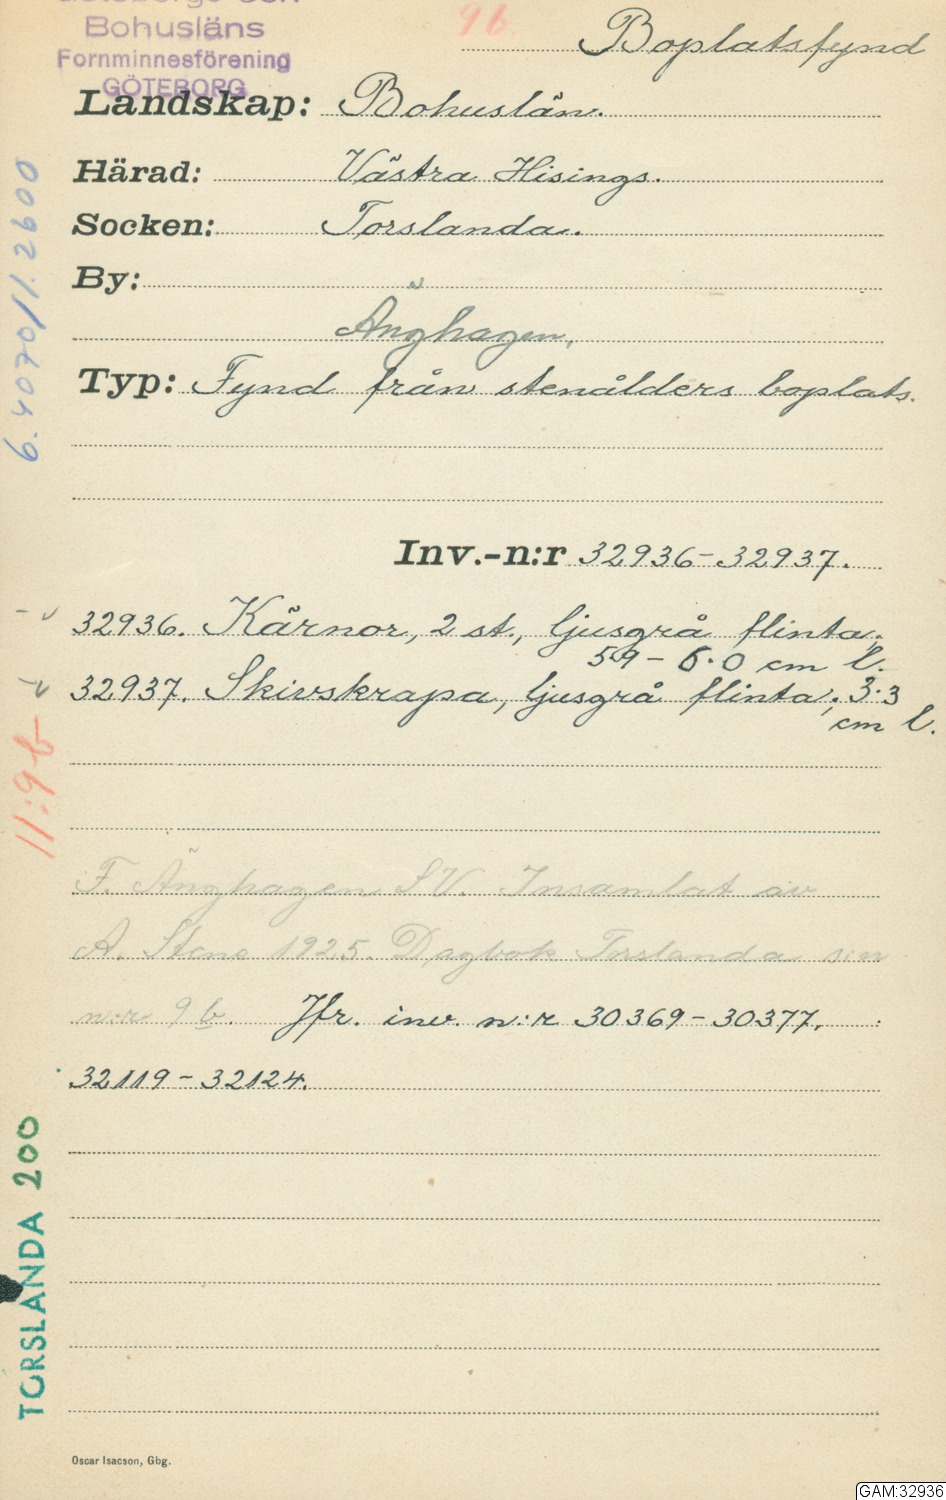 Göteborgs och
Bohusläns
Fornminnesförening
GÖTEBORG
9 b.
Boplatsfynd
Landskap: Bohuslän.
Härad: Västra Hisings.
Socken: Torslanda.
By:
Änghagen.
Typ: Fynd från stenålders boplats.
Inv.-n:r 32936-32937.
32936. Kärnor, 2 st., ljusgrå flinta;
5.9 - 6.0 cm l.
32937. Skivskrapa, ljusgrå flinta; 3.3
cm l.
F. Änghagen SV. Insamlat av
A. Stene 1925. Dagbok Torslanda sn
n:r 9 b. Jfr. inv. n:r 30369-30377.
32119-32124.
6.4070/1.2600
11:9b
TORSLANDA 200
Oscar Isacson, Gbg.
GAM:32936